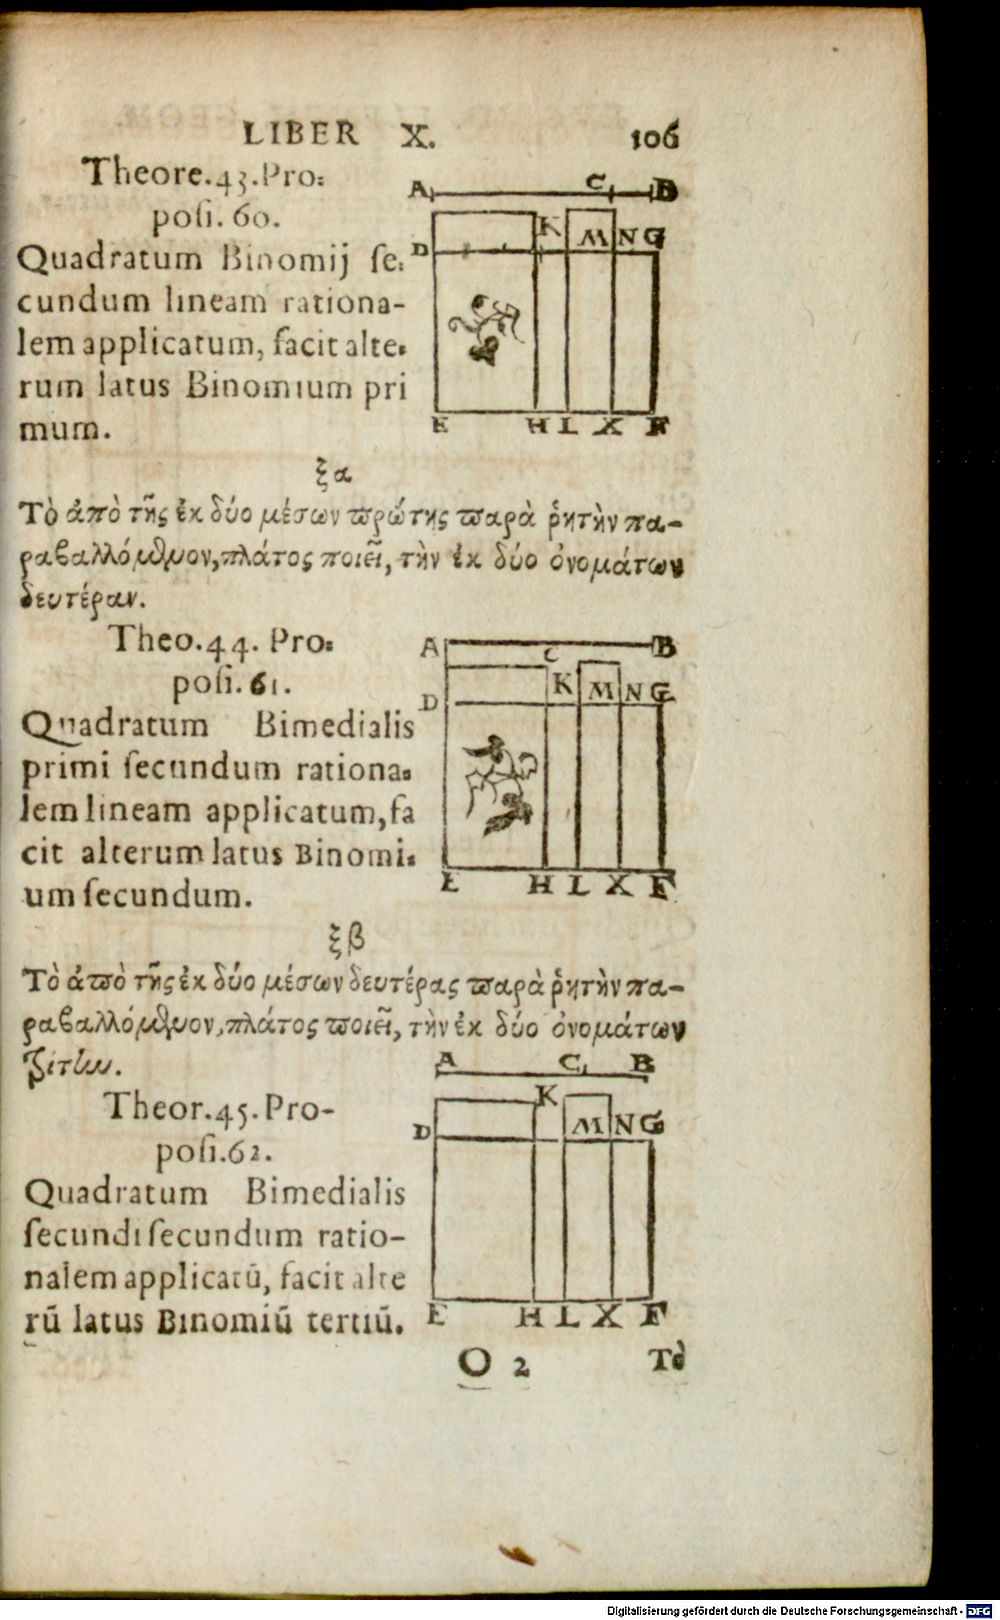 LIBER X. 106
Theore.43.Pro:
posi.60.
Quadratum Binomij se:
cundum lineam rationa-
lem applicatum, facit alte-
rum latus Binomium pri
mum.
A C B
K M N G
D
E H L X F
ξα
Τὸ ἀπὸ τῆς ἐκ δύο μέσων πρώτης παρὰ ῥητὴν πα-
ραβαλλόμενον, πλάτος ποιεῖ, τὴν ἐκ δύο ὀνομάτων
δευτέραν.
Theo.44. Pro:
posi.61.
Quadratum Bimedialis
primi secundum rationa-
lem lineam applicatum, fa
cit alterum latus Binomi-
um secundum.
A C B
K M N G
D
E H L X F
ξβ
Τὸ ἀπὸ τῆς ἐκ δύο μέσων δευτέρας παρὰ ῥητὴν πα-
ραβαλλόμενον, πλάτος ποιεῖ, τὴν ἐκ δύο ὀνομάτων
τρίτην.
Theor.45. Pro-
posi.62.
Quadratum Bimedialis
secundi secundum ratio-
nalem applicatū, facit alte
rū latus Binomiū tertiū.
A C B
K M N G
D
E H L X F
O 2 Τὸ
Digitalisierung gefördert durch die Deutsche Forschungsgemeinschaft - DFG